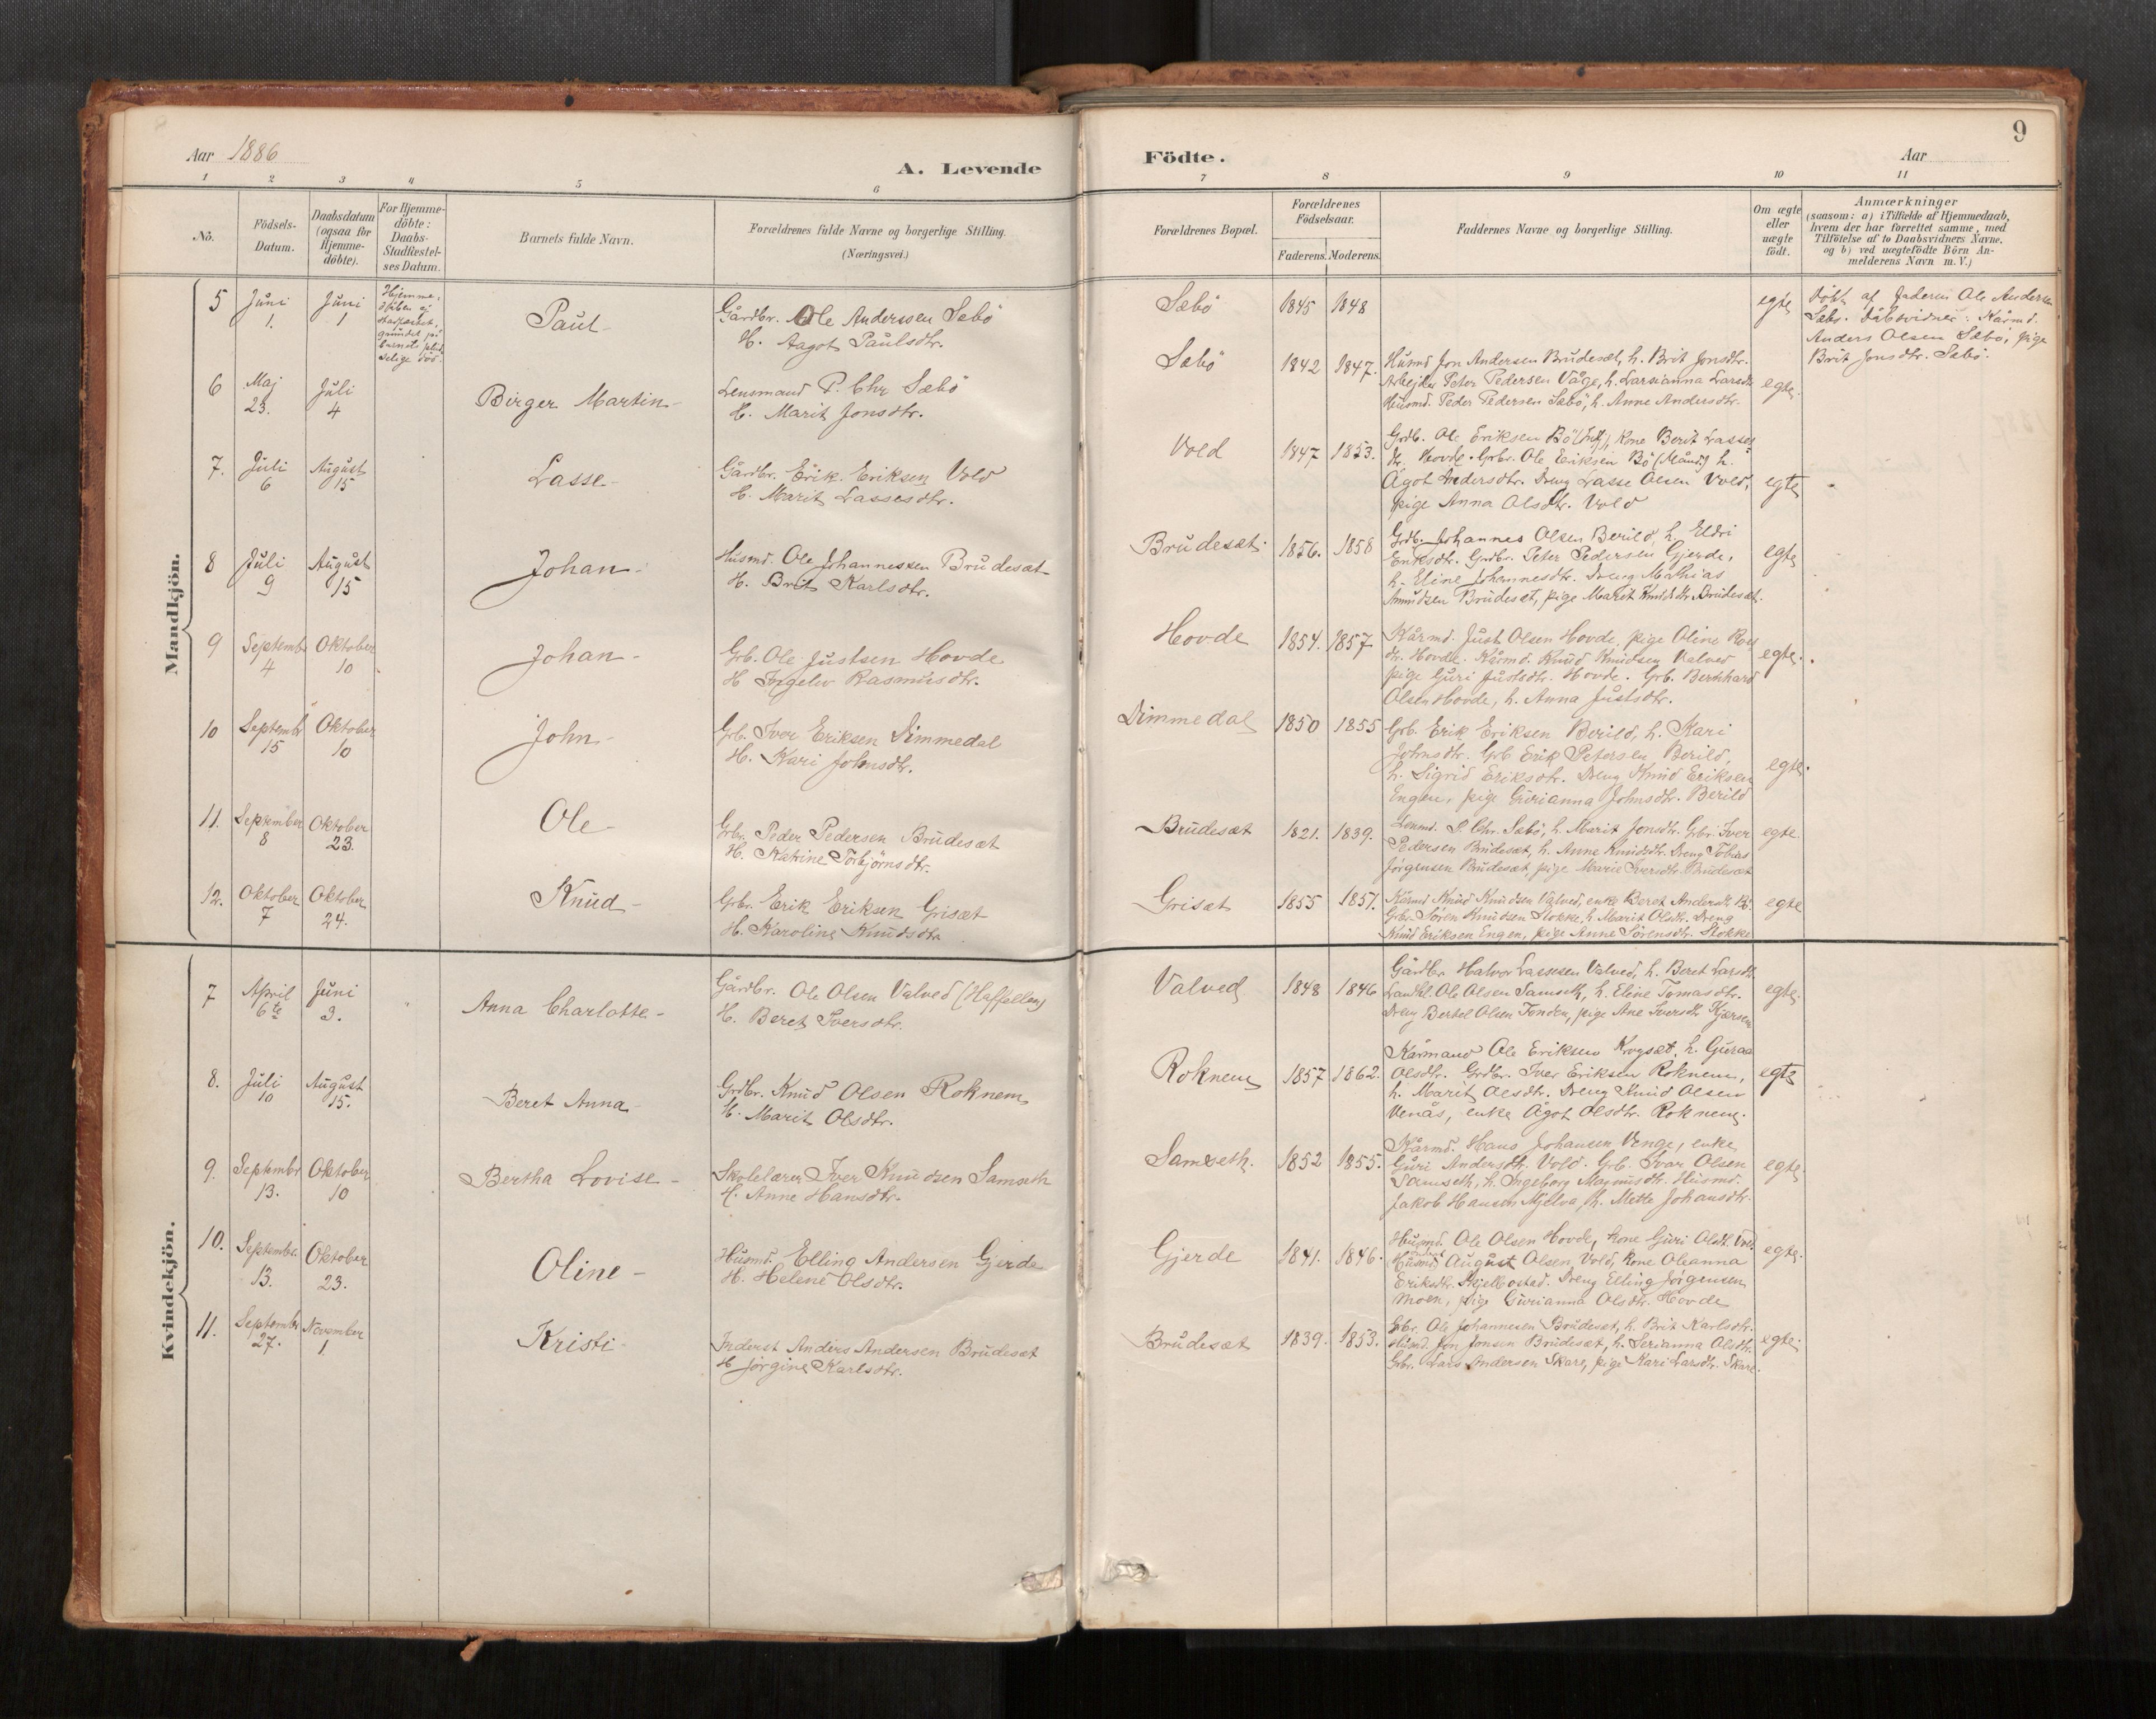 9
Aar 1886
A. Levende
Födte.
Aar
1 2 3 4 5 6 7 8 9 10 11
Nö.
Födsels-
Datum.
Daabsdatum
(ogsaa for
Hjemme-
döbte).
For Hjemme-
döbte:
Daabs-
Stadfestel-
ses Datum.
Barnets fulde Navn.
Forældrenes fulde Navne og borgerlige Stilling.
(Næringsvei.)
Forældrenes Bopæl.
Forældrenes
Födselsaar.
Faderens. Moderens.
Faddernes Navne og borgerlige Stilling.
Om ægte
eller
uægte
födt.
Anmærkninger
(saasom: a) i Tilfælde af Hjemmedaab,
hvem der har forrettet samme, med
Tilföielse af to Daabsvidners Navne,
og b) ved uægtefödte Börn An-
melderens Navn m. V.)
Mandkjön.
5
Juni
1.
Juni
1
Hjemme-
döben ej
stadfæstet,
grundet på
barnets plud-
selige död.
Paul
Gårdbr. Ole Anderssen Sæbö
H. Aagot Paulsdtr.
Sæbö
1845 1848
egte
Döbt af faderen Ole Andersen
Sæbö. Dåbsvidner: Kårmd.
Anders Olsen Sæbö, pige
Brit Jonsdtr. Sæbö.
6
Maj
23.
Juli
4
Birger Martin
Lensmand P. Chr Sæbö
H. Marit Jonsdtr.
Sæbö
1842 1847.
Husmd Jon Andersen Brudesæt, h. Brit Jonsdtr.
Arbejder Peter Pedersen Våge, h. Larsianna Larsdtr
Husmd. Peder Pedersen Sæbö, h. Anne Andersdtr.
egte.
7.
Juli
6
August
15
Lasse
Gårdbr. Erik Eriksen Vold
H. Marit Lassesdtr.
Vold
1847 1853.
Grdb. Ole Eriksen Bö, kone Berit Lasses
dtr. Hovde. Grbr. Ole Eriksen Bö h.
Ågot Andersdtr. Dreng Lasse Olsen Vold,
pige Anna Olsdtr. Vold
egte
8
Juli
9
August
15
Johan
Husmd. Ole Johannessen Brudesæt
H. Brit Karlsdtr.
Brudesæt
1856. 1858
Grdb. Johannes Olsen Berild, h. Eldri
Eriksdtr. Grdbr. Peter Pedersen Gjerde,
h. Eline Johannesdtr. Dreng Mathias
Amundsen Brudesæt, pige Marit Knudsdtr Brudesæt.
egte
9
Septemb
4
Oktober
10
Johan
Grb. Ole Justsen Hovde
H Ingelev Rasmusdtr.
Hovde
1854. 1857
Kårmd. Just Olsen Hovde, pige Oline
dtr. Hovde. Kårmd. Knud Knudsen Valved
pige Guri Justsdtr. Hovde. Grb. Bernhard
Olsen Hovde, h. Anna Justsdtr.
egte.
10
Septembr
15
Oktober
10
John
Grb. Iver Eriksen Dimmedal
H. Kari Johnsdtr.
Dimmedal
1850 1855
Grb. Erik Eriksen Berild, h. Kari
Johnsdtr. Grb Erik Petersen Berild,
h. Sigrid Eriksdtr. Dreng Knud Eriksen
Engen, pige Gurianna Johnsdtr. Berild
egte.
11.
September
8
Oktober
23.
Ole
Grbr. Peder Pedersen Brudesæt
H. Katrine Torbjörnsdtr.
Brudesæt
1821. 1839.
Lensmd. P. Chr. Sæbö, h. Marit Jonsdtr. Grbr. Iver
Pedersen Brudesæt, h. Anne Knudsdtr. Dreng Tobias
Jörgensen Brudesæt, pige Marie Iversdtr. Brudesæt
egte
12.
Oktober
7
Oktober
24.
Knud
Grbr. Erik Eriksen Grisæt
H. Karoline Knudsdtr
Grisæt
1855 1857.
Kårmd Knud Knudsen Valved, enke Beret Andersdtr Bö.
Grbr. Sören Knudsen Stokke, h. Marit Olsdtr. Dreng
Knud Eriksen Engen, pige Anne Sörensdtr. Stokke
egte
Kvindekjön.
7
April
6te
Juni
3.
Anna Charlotte
Gårdbr. Ole Olsen Valved (Haffellen)
H. Beret Iversdtr.
Valved
1848 1846
Gårdbr. Halvor Lassesen Valved, h. Beret Larsdtr.
Landhl. Ole Olsen Samseth, h. Eline Tomasdtr.
Dreng Bertel Olsen Fonden, pige Ane Iversdtr Kjörsem
egte.
8.
Juli
10
August
15.
Beret Anna
Grdbr. Knud Olsen Roknem
H. Marit Olsdtr.
Roknem
1857 1862.
Kårmand Ole Eriksen Krogsæt, h. Guraa
Olsdtr. Grdbr. Iver Eriksen Roknem,
h. Marit Olsdtr. Dreng Knud Olsen
Venås, enke Ågot Olsdtr. Roknem.
egte
9.
Septembr
13.
Oktober
10
Bertha Lovise
Skolelærer Iver Knudsen Samseth
H. Anne Hansdtr.
Samseth.
1852 1855.
Kårmd. Hans Johansen Venge, enke
Guri Andersdtr. Vold. Grb. Ivar Olsen
Samseth, h. Ingeborg Magnusdtr. Husmd.
Jakob Hansen Mjelva, h. Mette Johansdtr.
egte.
10.
September
13.
Oktober
23.
Oline
Husmd. Elling Andersen Gjerde
H. Helene Olsdtr.
Gjerde
1841. 1846.
Husmd. Ole Olsen Hovde, kone Guri Olsdtr. Vold.
Husmd August Olsen Vold, kone Oleanna
Eriksdtr. Skjelbostad. Dreng Elling Jörgensen
Moen, pige Gurianna Olsdtr. Hovde
egte.
11.
September
27.
November
1
Kristi
Inderst Anders Andersen Brudesæt
H Jörgine Karlsdtr.
Brudesæt
1839. 1853.
Grbr. Ole Johannesen Brudesæt, h. Brit Karlsdtr.
Husmd. Jon Jonsen Brudesæt, h. Serianna Olsdtr.
Grbr. Lars Andersen Skare, pige Kari Larsdtr. Skare.
egte.